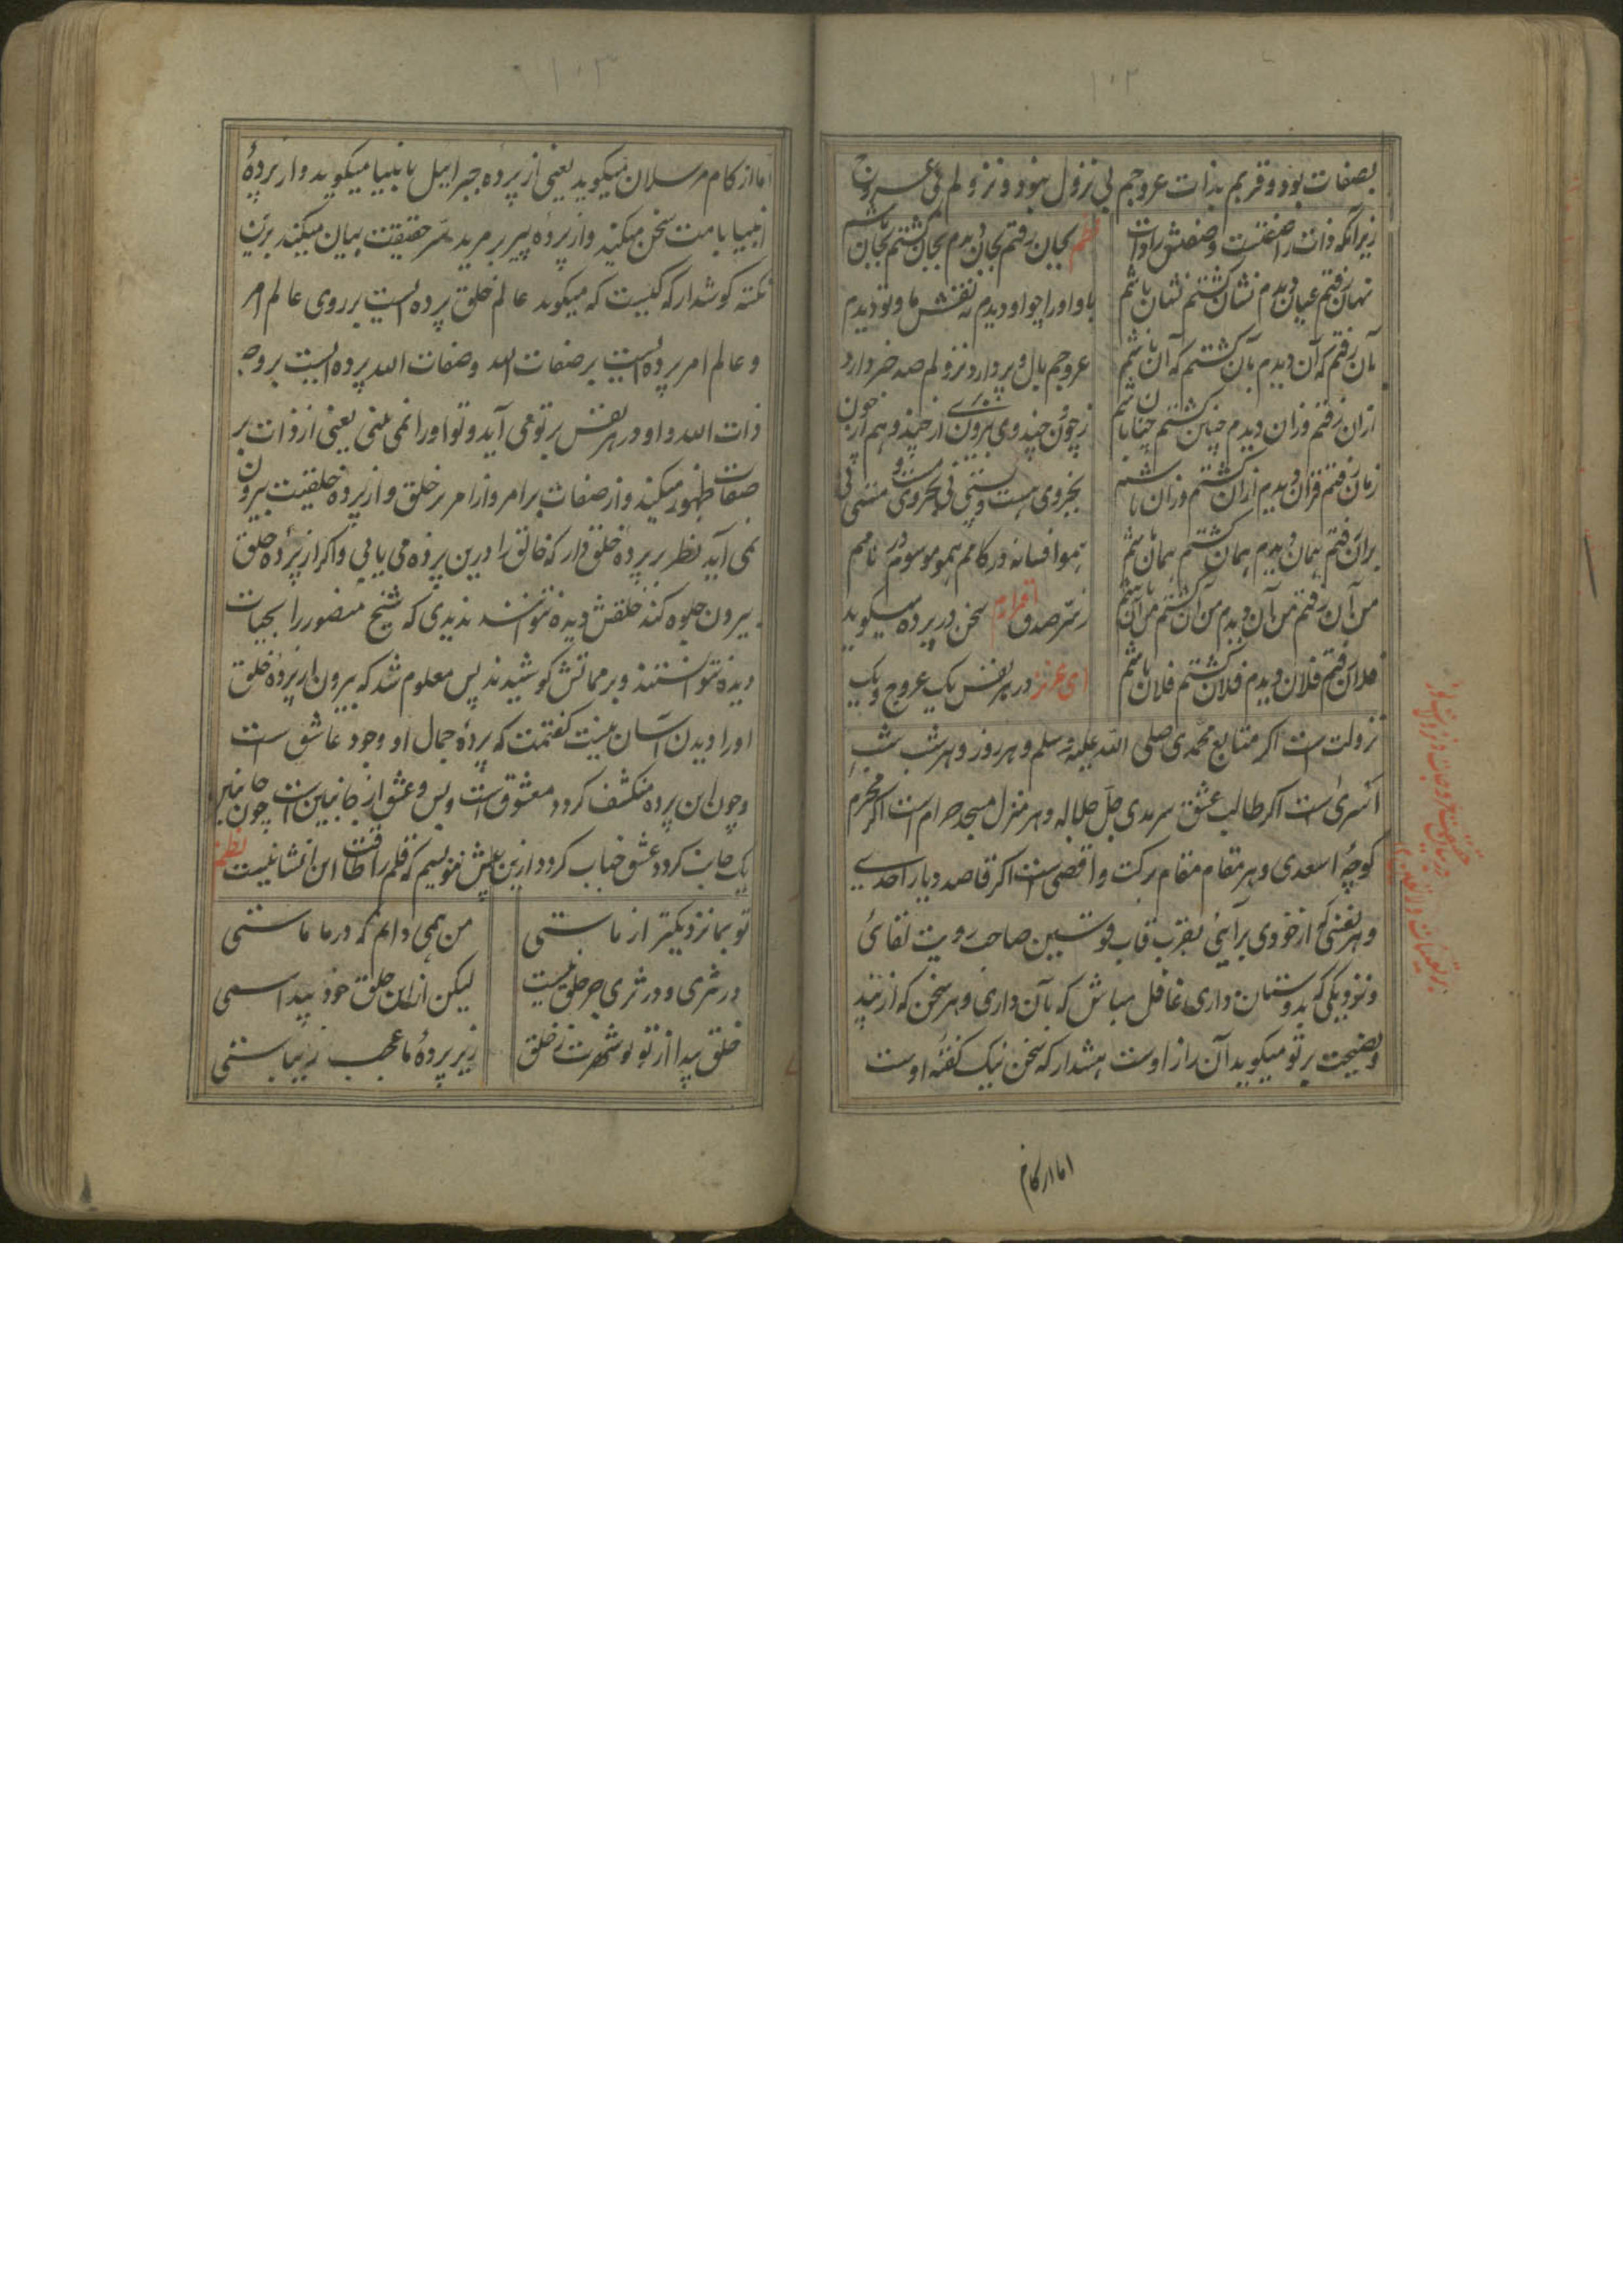 ۱۰۲
بصفات بود و قربم بذات عروجم بی نزول نبود و نزولم بی عروج
زیرانکه ذات را صفتست و صفتش را ذات نظم بجان رفتم بجان دیدم بجان گشتم بجان باشم
نهان رفتم عیان دیدم نشان گشتم نهان باشم باو او را چو او دیدم نه نفش ما و تو دیدم
بآن رفتم که آن دیدم بآن گشتم که آن باشم عروجم بال و پر وارد نزولم صد خبر دارد
ازان رفتم وزان دیدم چنان گشتم چنان باشم ز چون چند وی بیرون از چند و هم از چون
زمان رفتم قران دیدم ازان گشتم وزان باشم
بران رفتم همان دیدم همان گشتم همان باشم همو افسانه در کامم همو موسوم در نامم
من آن رفتم من آن دیدم من آن گشتم من آن باشم ز سر صدق اقرارم سخن در پرده میگوید
فلان رفتم فلان دیدم فلان گشتم فلان باشم ای عزیز در هر نفس یک عروج و یک
نزولت است اگر متابع محمدی صلی الله علیه و سلم و هر روز و هر شب شب
اسری است اگر طالب عشق سرمدی جل جلاله و هر منزل مسجد حرام است اگر محرم
کوچهٔ اسعدی و هر مقام مقام برکت و اقصی است اگر قاصد دیار احدی
و هر نفسی که از خودی برآیی بقرب قاب قوسین صاحب رویت لقائی
و نزدیکی که بدوستان داری غافل مباش که بآن داری و هر سخن که از پند
و نصیحت بر تو میگوید آن راز اوست هشدار که سخن نیک گفتهٔ اوست
اما از کام
۱۰۳
اما از کام مرسلان میگوید یعنی از پرده جبراییل بانبیا میگوید و از پردهٔ
انبیا بامت سخن میکند و از پردهٔ پیر بر مرید سر حقیقت بیان میکند برین
نکته گوشدار که کیست که میگوید عالم خلق پرده ایست بر روی عالم امر
و عالم امر پرده ایست بر صفات الله و صفات الله پرده ایست بر وجه
ذات الله و او در هر نفس بر تو می آید و تو او را نمی بینی یعنی از ذات بر
صفات ظهور میکند و از صفات بر امر و از امر بر خلق و از پرده خلقیت بیرون
نمی آید نظر بر پرده خلق دار که خالق را درین پرده می یابی و اگر از پردهٔ خلق
بیرون جلوه کند خلقش دیده نتوانند ندیدی که شیخ منصور را بحیات
دیده نتوانستند و بر مماتش کوشیدند پس معلوم شد که بیرون از پردهٔ خلق
او را دیدن آسان نیست گفتمت که پردهٔ جمال او وجود عاشق است
و چون این پرده منکشف گردد معشوق است و بس و عشق از جانبین است چون جانبین
یک جانب گردد عشق خراب گردد ازین بیش ننویسم که قلم را طاقت این انشا نیست نظم
تو بما نزدیکتر از ماستی من همی دانم که در ما ماستی
در ثری و در ثری جز خلق نیست لیکن از این خلق خود پیداستی
خلق پیدا از تو تو شهرت ز خلق زیر پردهٔ ما عجب زیباستی